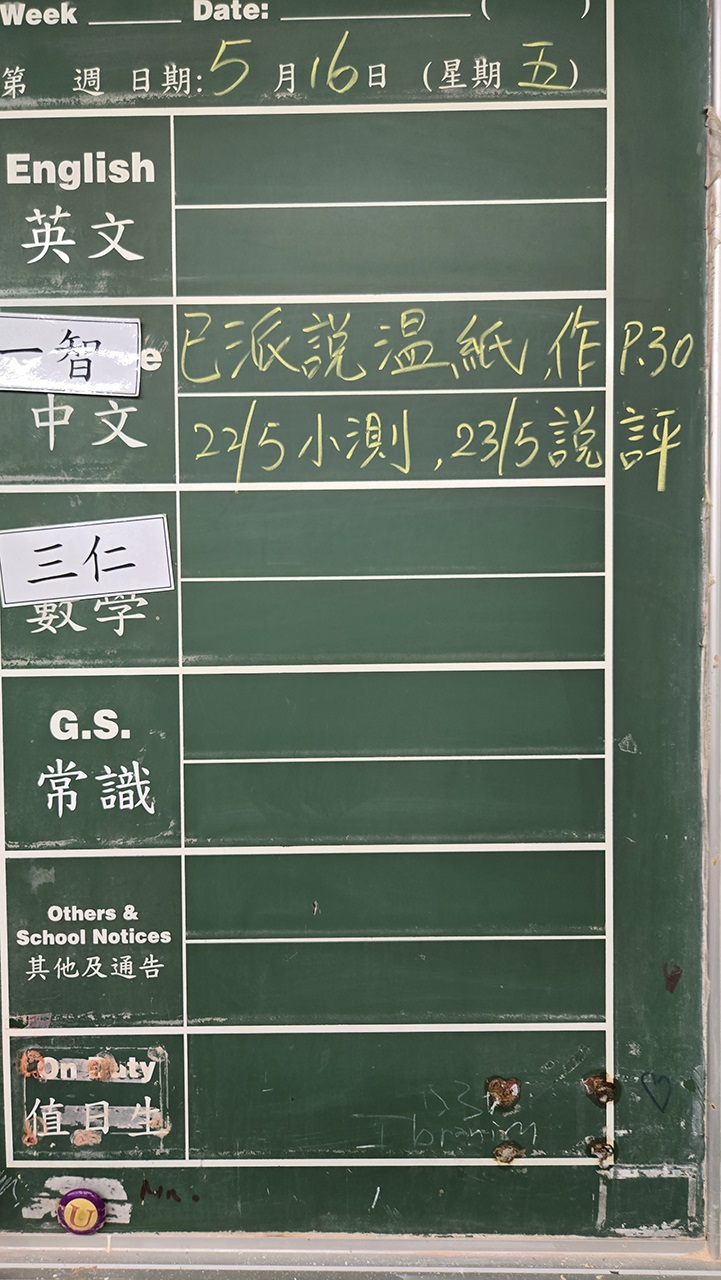 Week ______ Date: ____________ ( )
第 週 日期: 5 月 16 日 (星期 五)
English
英文
一智 e
已派說温紙, 作 P.30
中文
22/5 小測, 23/5 說評
三仁
數学
G.S.
常識
Others &
School Notices
其他及通告
On Duty
值日生
Ibrahim
U